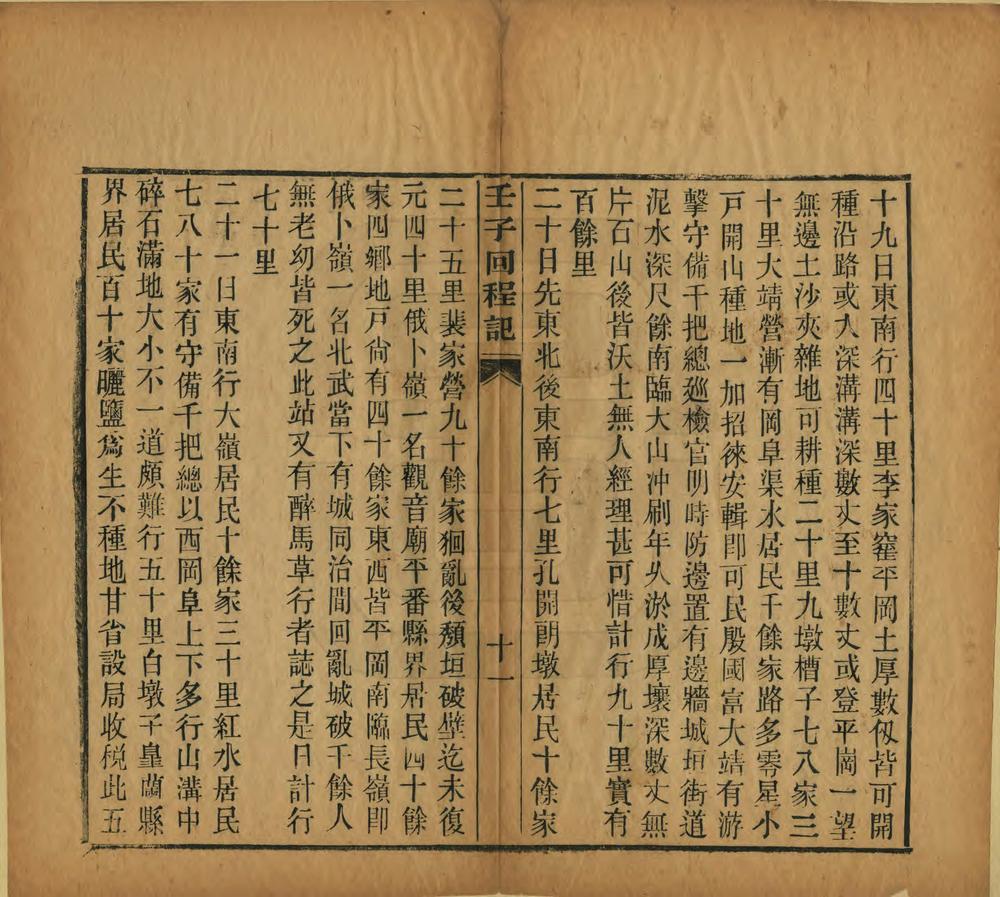 十九日東南行四十里李家窪平岡土厚數仭皆可開
種沿路或入深溝溝深數丈至十數丈或登平崗一望
無邊土沙夾雜地可耕種二十里九墩槽子七八家三
十里大靖營漸有岡阜渠水居民千餘家路多零星小
戸開山種地一加招徠安輯卽可民殷國富大靖有游
擊守備千把總廵檢官明時防邊置有邊牆城垣街道
泥水深尺餘南臨大山冲刷年久淤成厚壤深數丈無
片石山後皆沃土無人經理甚可惜計行九十里實有
百餘里
二十日先東北後東南行七里孔開朗墩居民十餘家
壬子回程記 十一
二十五里裴家營九十餘家徊亂後頹垣破壁迄未復
元四十里俄卜嶺一名觀音廟平番縣界居民四十餘
家四鄉地戸尙有四十餘家東西皆平岡南臨長嶺卽
俄卜嶺一名北武當下有城同治間回亂城破千餘人
無老幼皆死之此站又有醉馬草行者誌之是日計行
七十里
二十一日東南行大嶺居民十餘家三十里紅水居民
七八十家有守備千把總以西岡阜上下多行山溝中
碎石滿地大小不一道頗難行五十里白墩子皇蘭縣
界居民百十家曬鹽爲生不種地甘省設局收稅此五